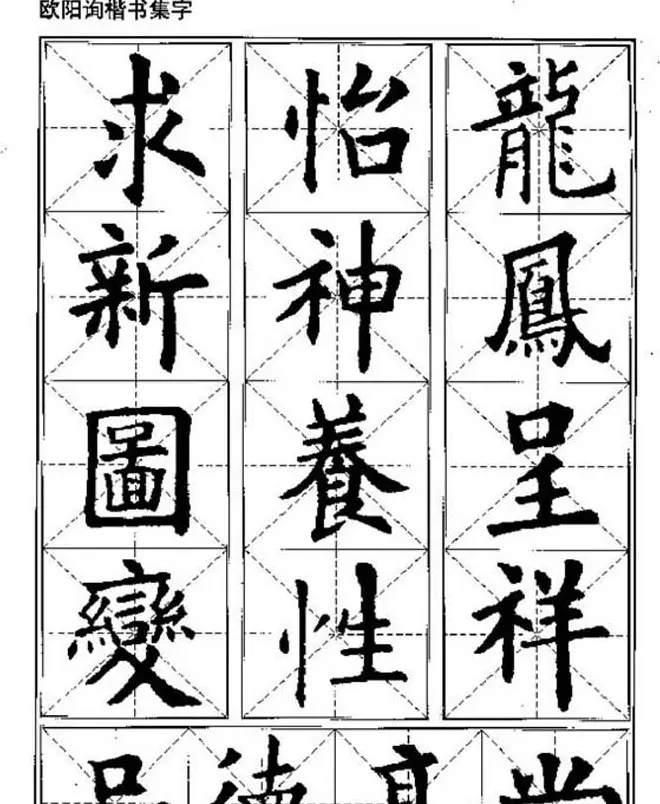 欧阳询楷书集字
龍鳳呈祥
怡神養性
求新圖變